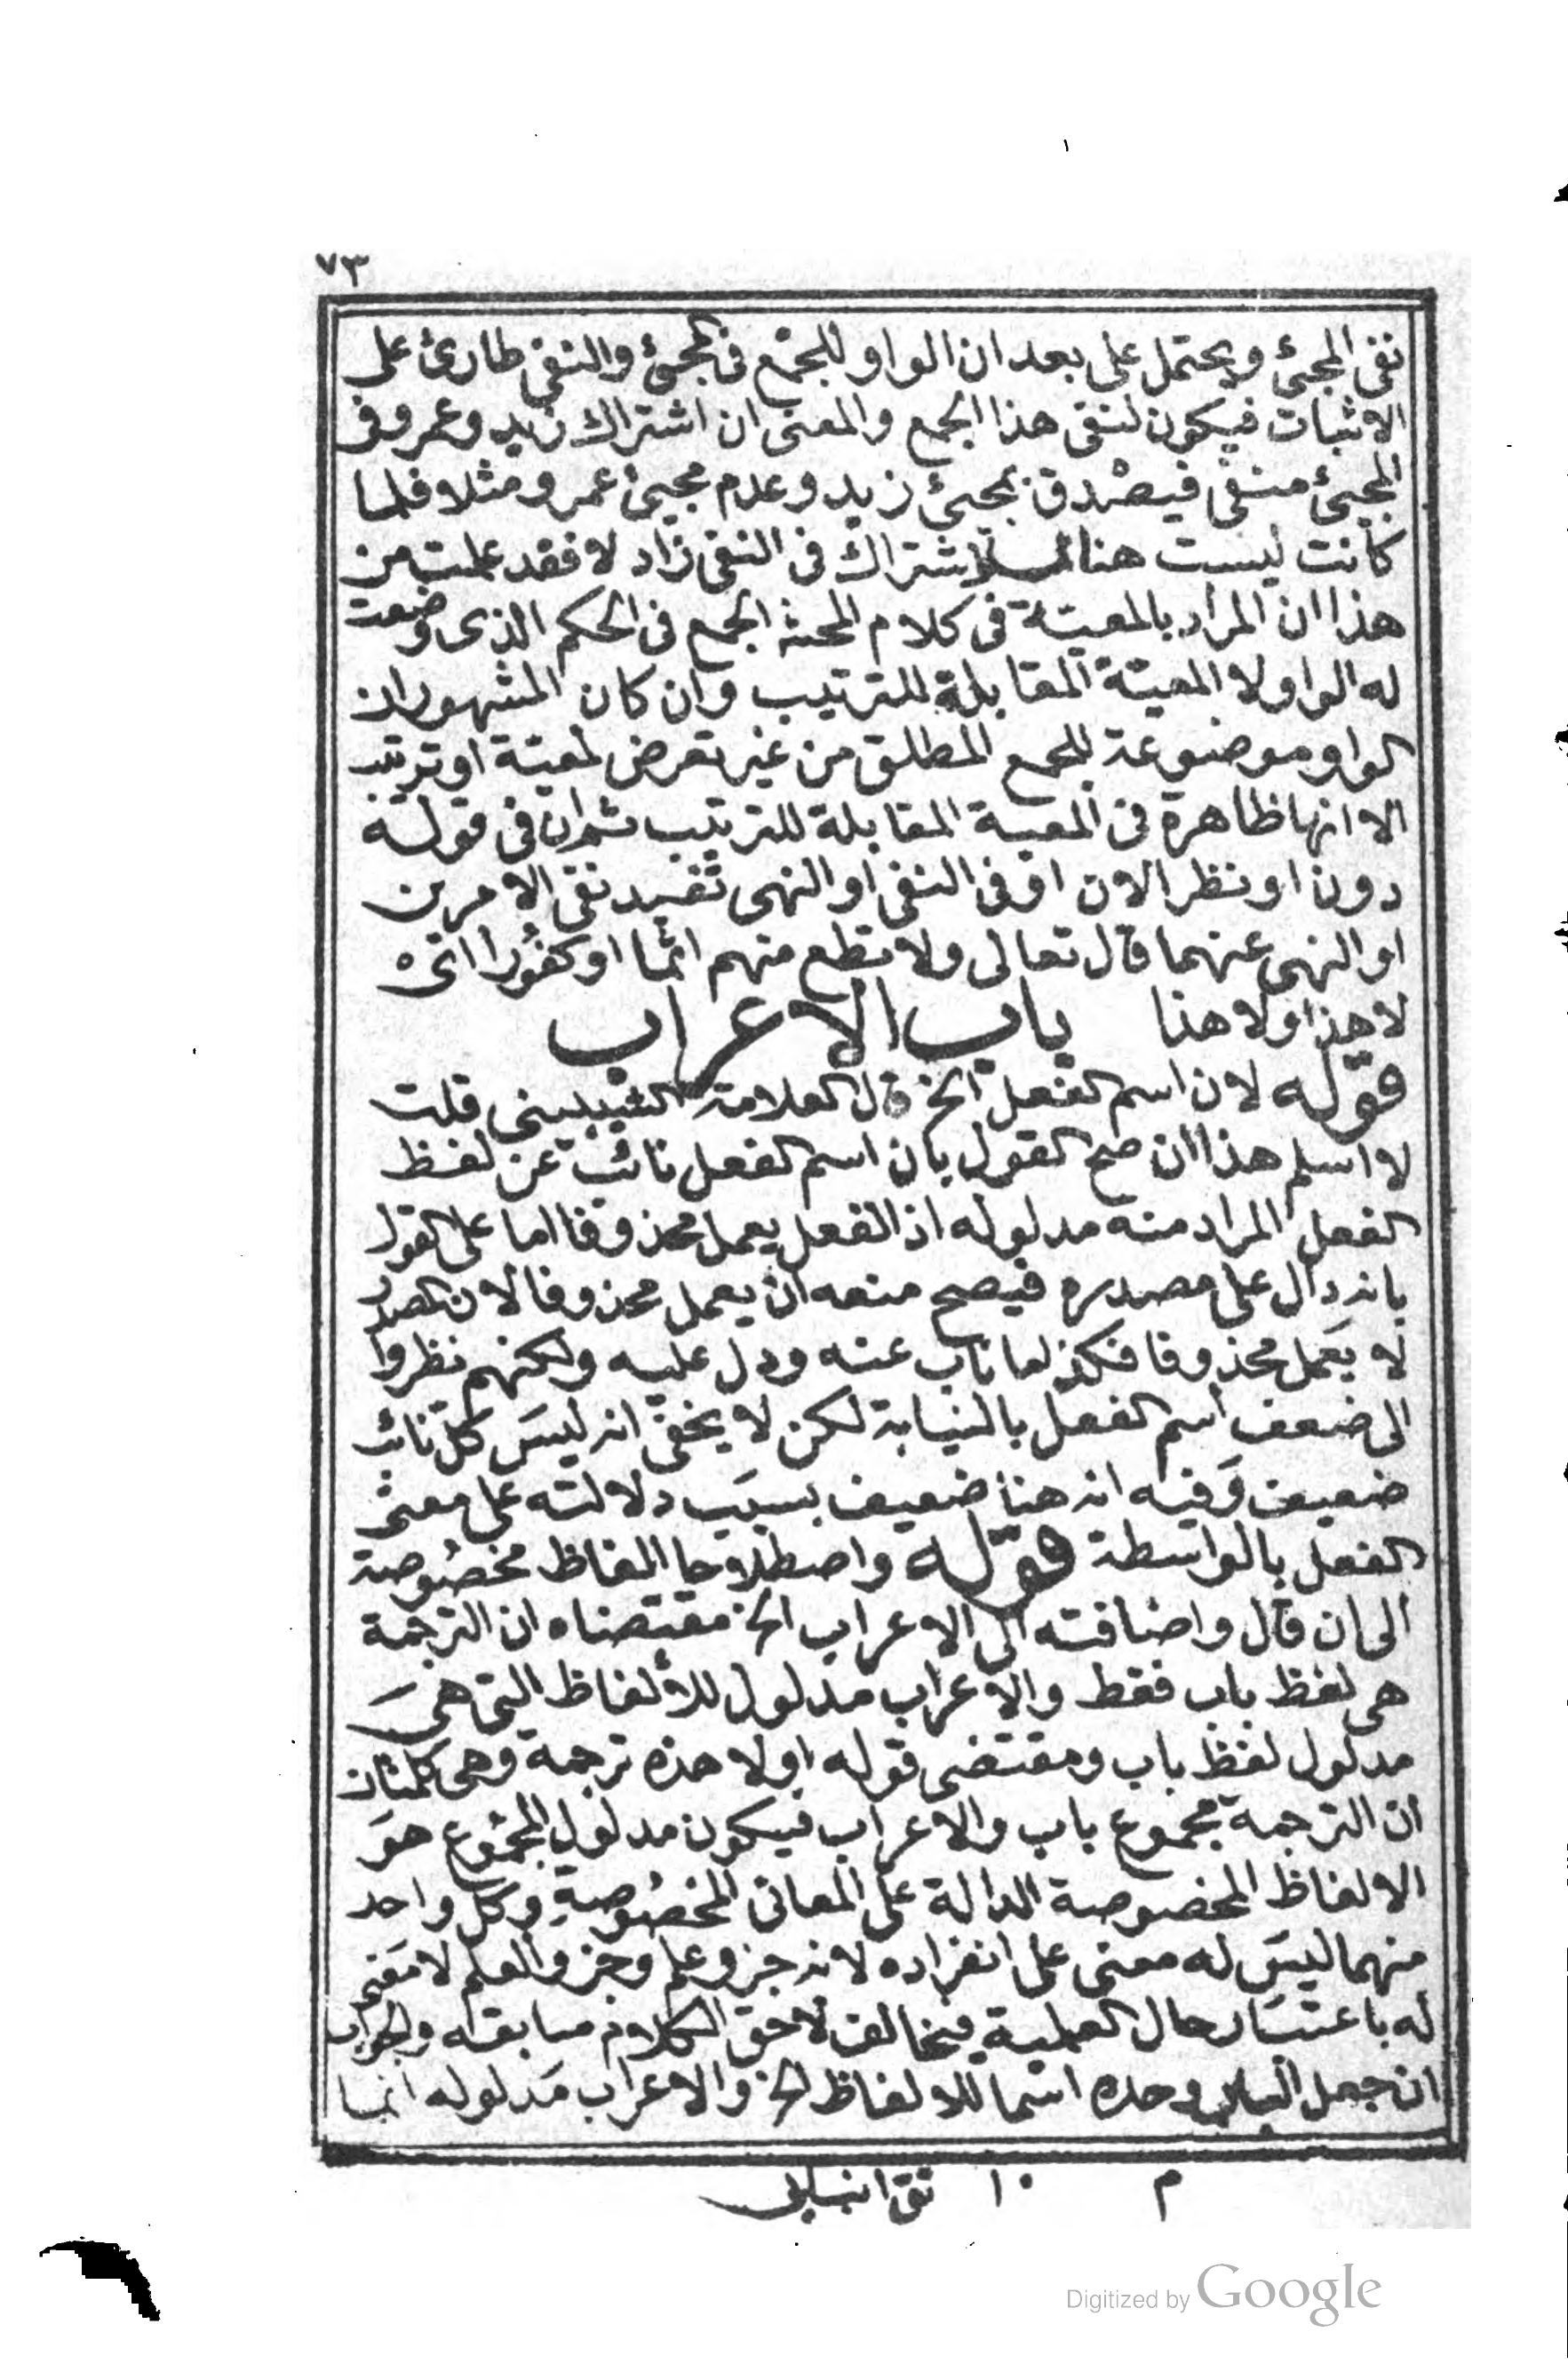 ٧٣
نفى المجئ ويحتمل على بعد ان الواو للجمع فى المجئ والنفى طارئ على
الاثبات فيكون لنفى هذا الجمع والمعنى ان اشتراك زيد وعمرو فى
المجئ منفى فيصدق بمجئ زيد وعدم مجيئ عمرو مثلا فلما
كانت ليست هنا للاشتراك فى النفى زاد لا فقد علمت من
هذا ان المراد بالمعية فى كلام المحشى الجمع فى الحكم الذى وضعت
له الواو لا المعية المقابلة للترتيب وان كان المشهور ان
الواو موضوعة للجمع المطلق من غير تعرض لمعية او ترتيب
الا انها ظاهرة فى المعية المقابلة للترتيب ثم ان فى قوله
دون او نظر الان او فى النفى او النهى تفيد نفى الامرين
او النهى عنهما قال تعالى ولا تطع منهم اثما او كفورا اى
لا هذا ولا هذا باب الاعراب
قوله لان اسم الفعل الخ قال العلامة الشبيبنى قلت
لا اسلم هذا ان صح القول بان اسم الفعل نائب عن لفظ
الفعل المراد منه مدلوله اذ الفعل يعمل محذوفا اما على القول
بانه دال على مصدره فيصح منعه ان يعمل محذوفا لان المصدر
لا يعمل محذوفا فكذا ما ناب عنه ودل عليه ولكنهم نظروا
الى ضعف اسم الفعل بالنيابة لكن لا يخفى انه ليس كل نائب
ضعيف وفيه انه هنا ضعيف بسبب دلالته على معنى
الفعل بالواسطة قوله واصطلاحا الفاظ مخصوصة
الى ان قال واضافته الى الاعراب الخ مقتضاه ان الترجمة
هى لفظ باب فقط والاعراب مدلول للألفاظ التى هى
مدلول لفظ باب ومقتضى قوله اولا هذه ترجمة وهى كلمتان
ان الترجمة مجموع باب والاعراب فيكون مدلول المجموع هو
الالفاظ المخصوصة الدالة على المعانى المخصوصة وكل واحد
منهما ليس له معنى على انفراده لانه جزو علم وجزو العلم لا معنى
له باعتبار حال العلمية فيخالف لاحق الكلام سابقه والجواب
ان جعل الباب وحده اسما للالفاظ الخ والاعراب مدلوله انما
م ١٠ تق انبابى
Digitized by Google